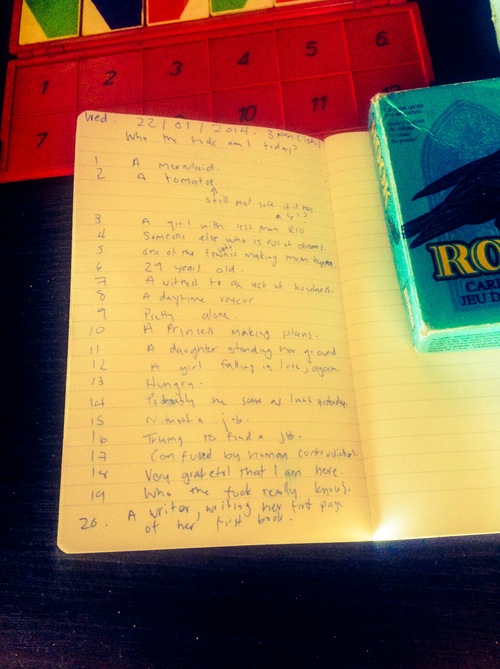 1 2 3 4 5 6
7 10 11
Wed. 22/01/2014.
Who the fuck am I today?
1 A mermaid.
2 A tomatoe
still not sure if it has
3 A girl with less than R10
4 Someone else who is full of dreams.
5 one of the making them
6 29 years old.
7 A witness to an act of kindness.
8 A daytime voyeur
9 Pretty alone.
10 A Princess making plans.
11 A daughter standing her ground
12 A girl falling in love, again.
13 Hungry.
14 Probably the same as I was yesterday.
15 Without a job.
16 Trying to find a job.
17 Confused by human contradictions.
18 Very grateful that I am here.
19 Who the fuck really knows.
20. A writer, writing her first page
of her first book.
RO
CAR
JEU D